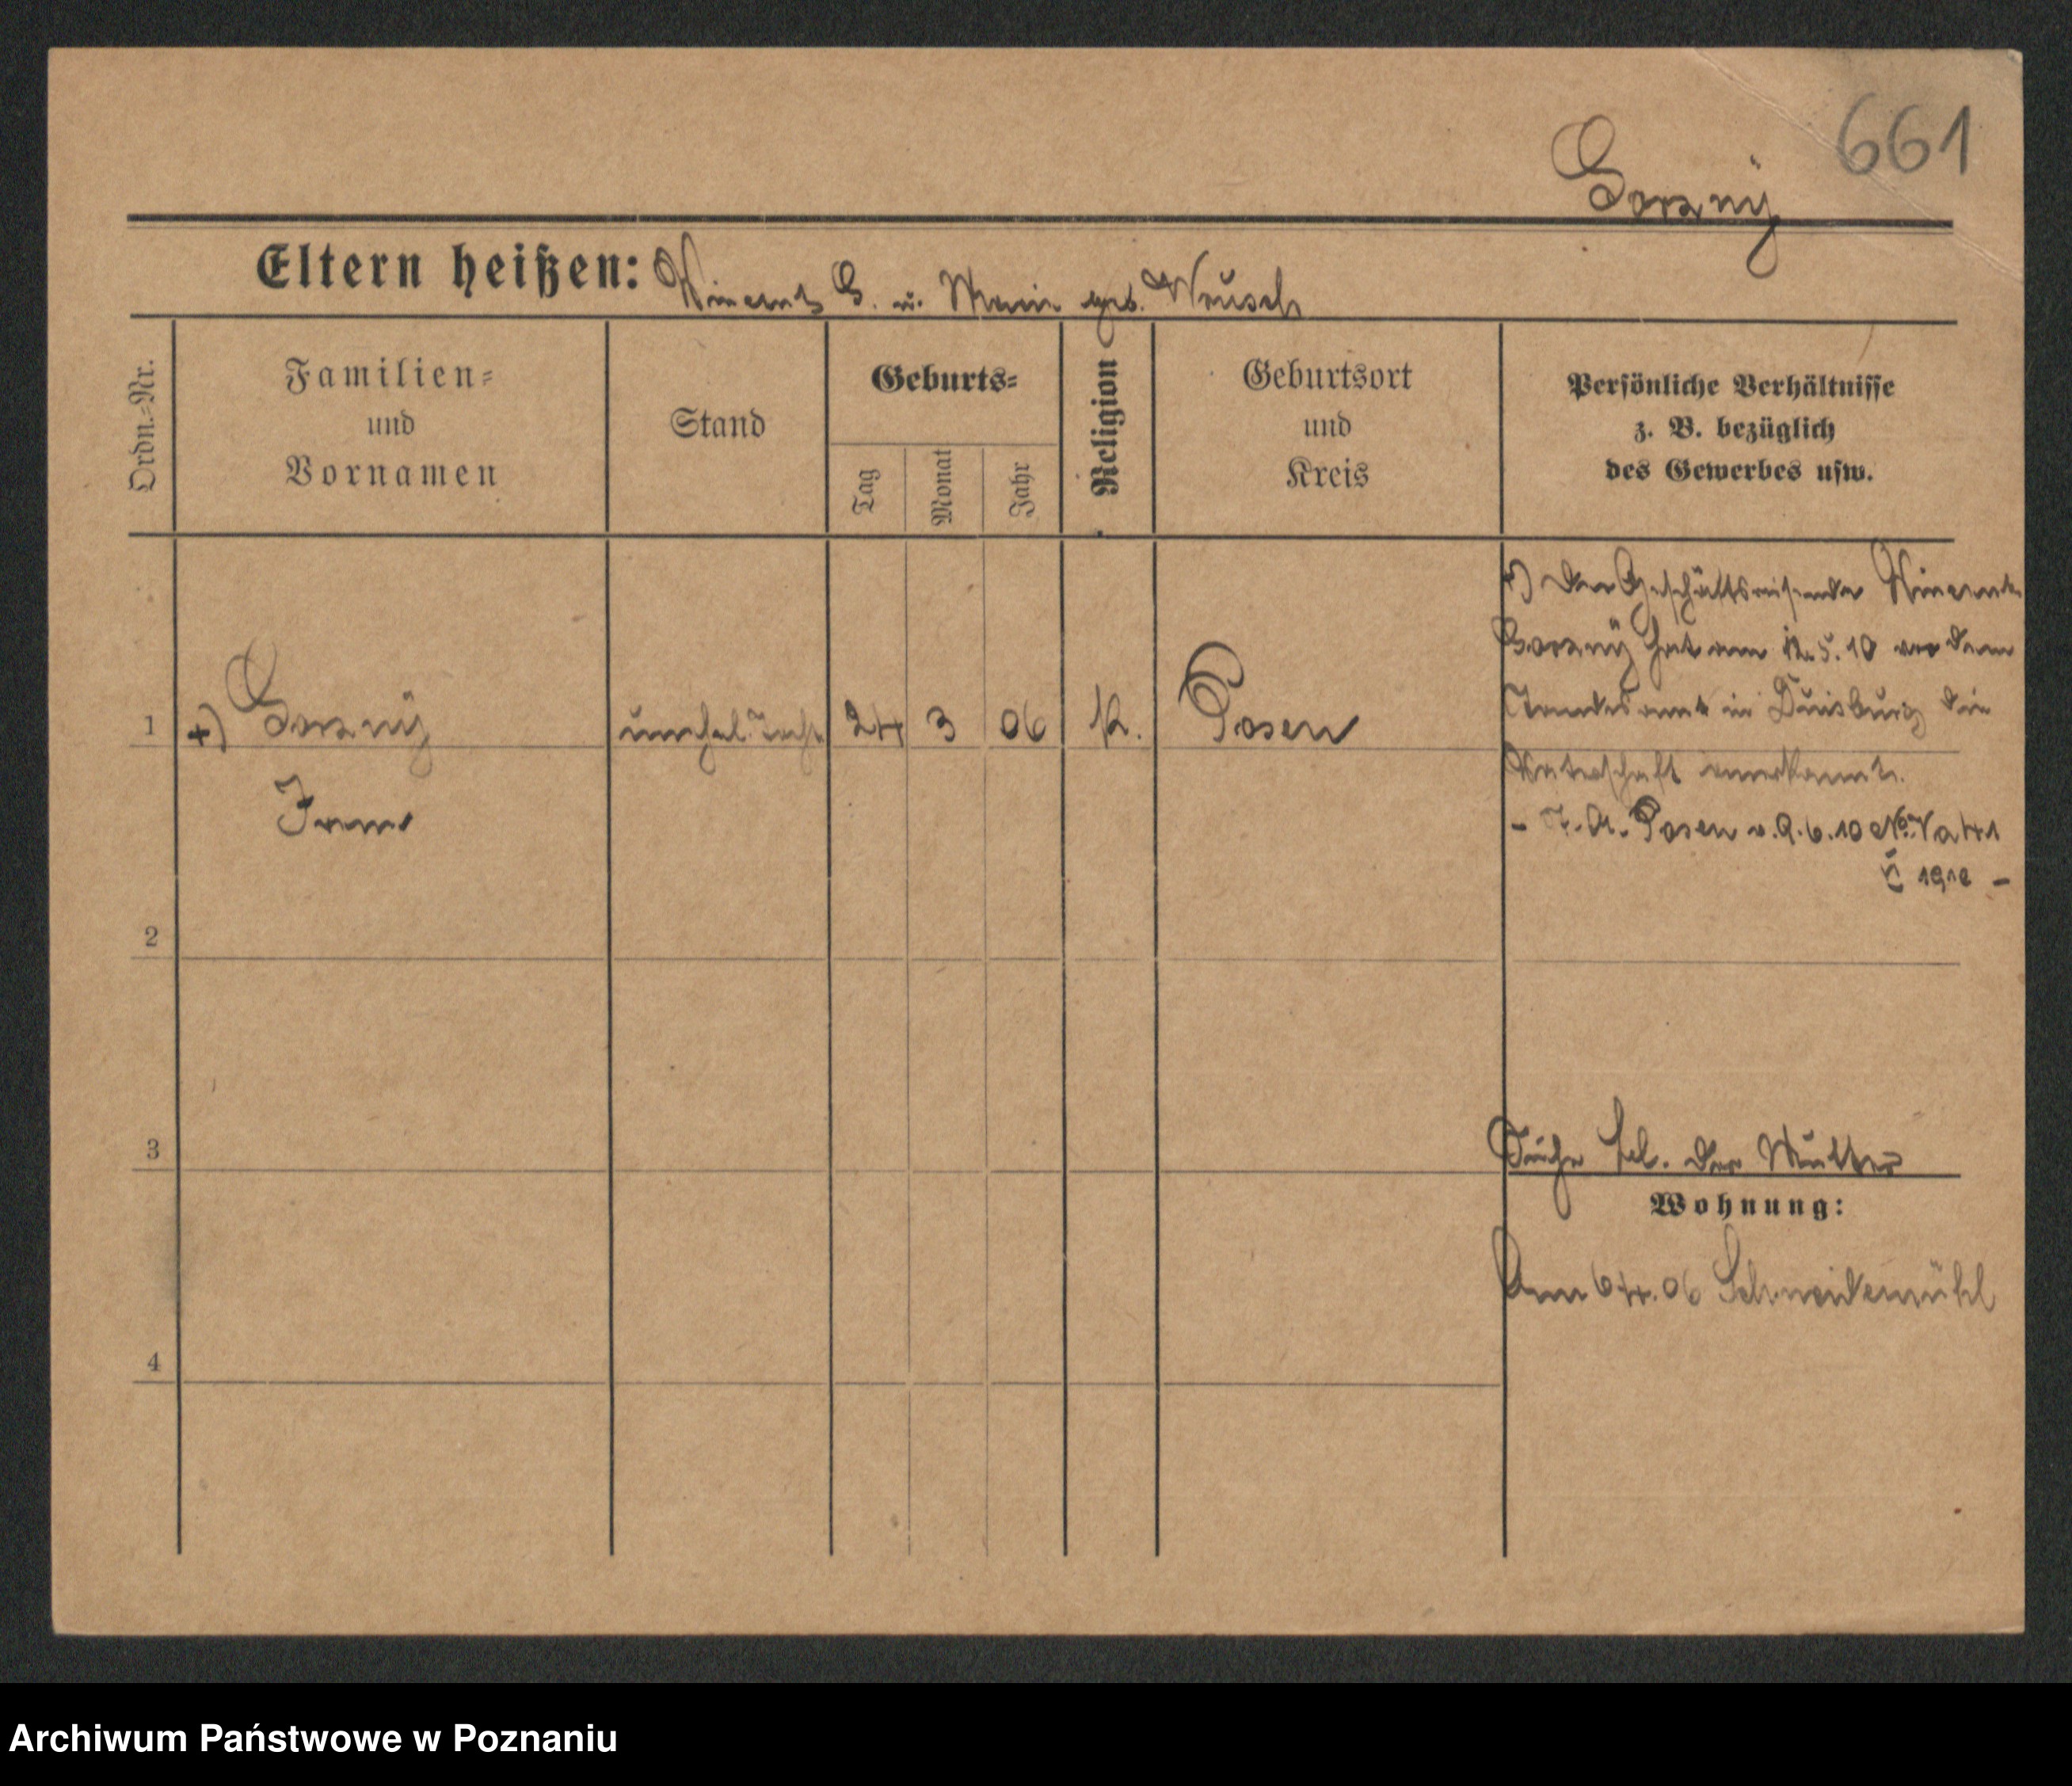 661
Gorzny
Eltern heißen: Vincent G. u. Marie geb. Wrusch
Ordn.-Nr.
Familien-
und
Vornamen
Stand
Geburts-
Tag
Monat
Jahr
Religion
Geburtsort
und
Kreis
Persönliche Verhältnisse
z. B. bezüglich
des Gewerbes usw.
1 +) Gorzny unehel. Tocht. 24 3 06 K. Posen
Irene
+) Der Geschäftsreisende Vincent
Gorzny hat am 12.5.10 vor dem
Standesamt in Duisburg die
Vaterschaft anerkannt.
- St. A. Posen v. 9.6.10 No Va 41
1910 -
2
3
Siehe Bl. der Mutter
Wohnung:
Am 6 4. 06 Schneidemühl
4
Archiwum Państwowe w Poznaniu